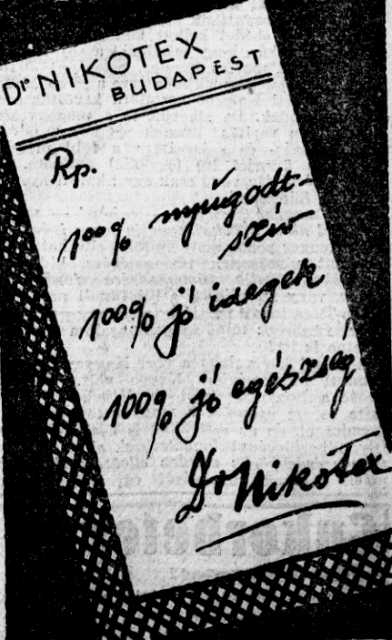 Dr NIKOTEX
BUDAPEST
Rp.
100% nyugodt-
szív
100% jó idegek
100% jó egészség
Dr Nikotex